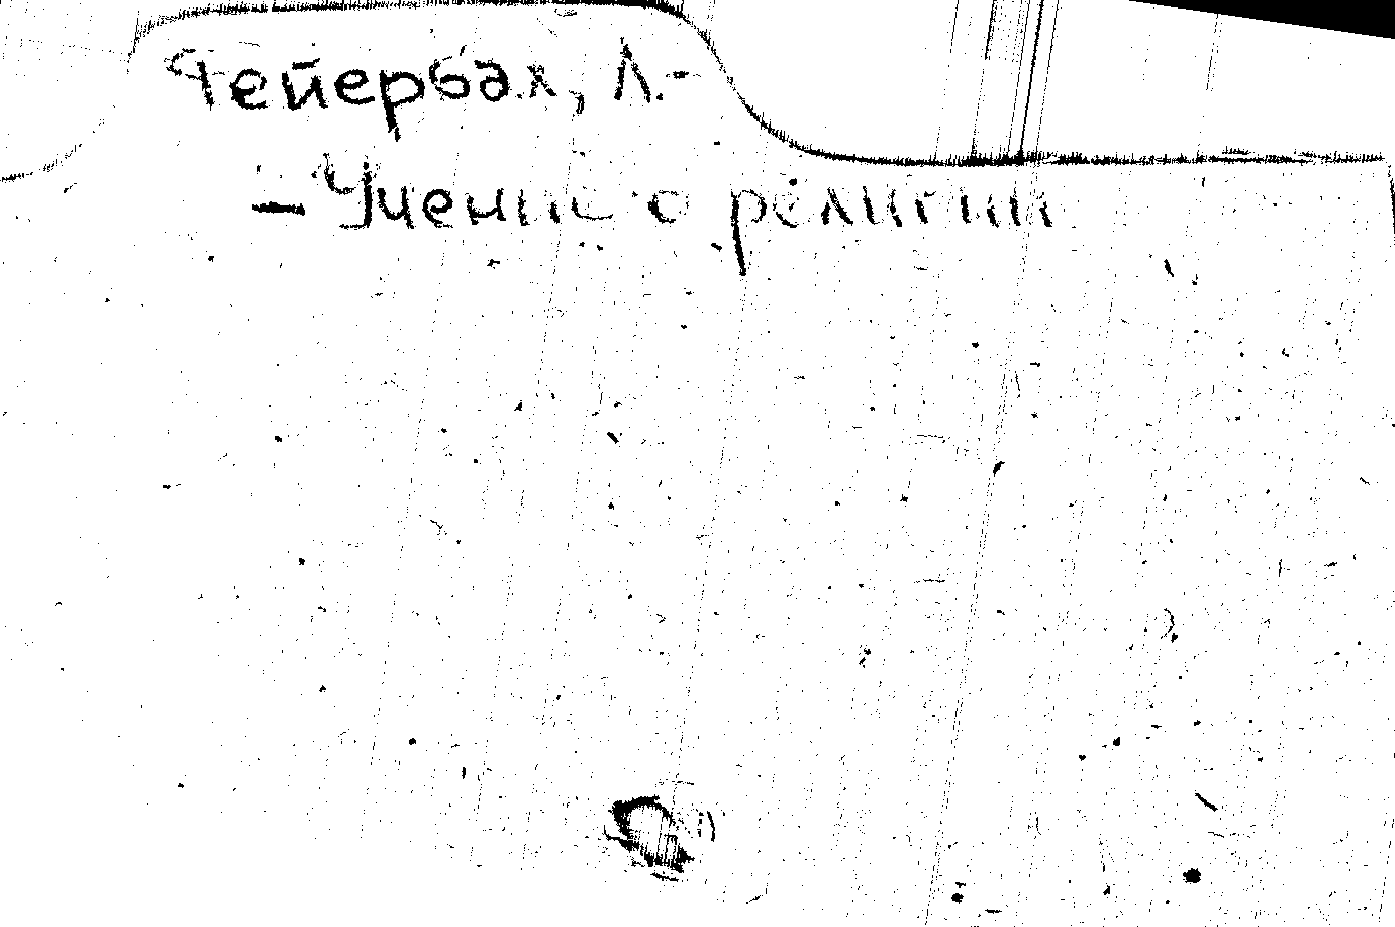 Фейербах, Л.-
- Учение о религии